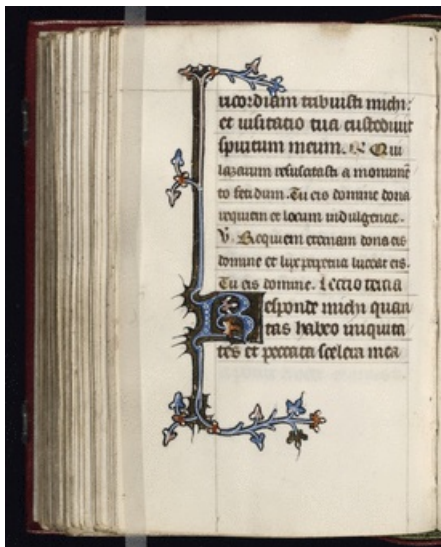 ricordiam tribuisti michi:
et uisitacio tua custodiuit
spiritum meum. R. Qui
lazarum resuscitasti a monumēt
to fetidum. Tu eis domine dona
requiem et locum indulgencie.
V. Requiem eternam dona eis
domine et lux perpetua luceat eis.
Tu eis domine. Lectio tercia
Responde michi quan
tas habeo iniquita
tes et peccata scelera mea